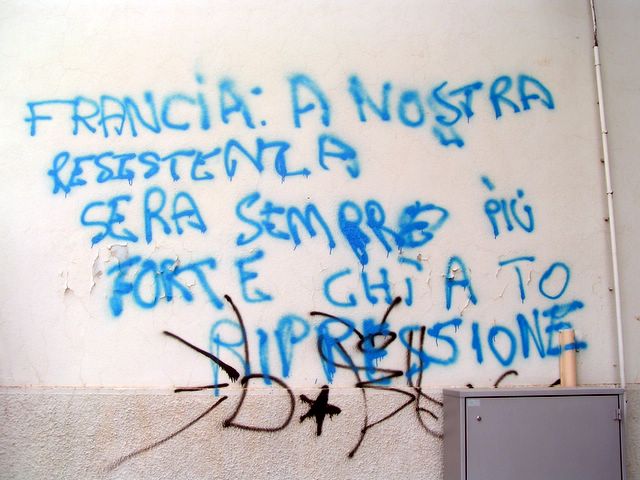 FRANCIA: A NOSTRA
RESISTENZA
SERA SEMPRE PIÙ
FORTE CHÌ A TO
RIPRESSIONE